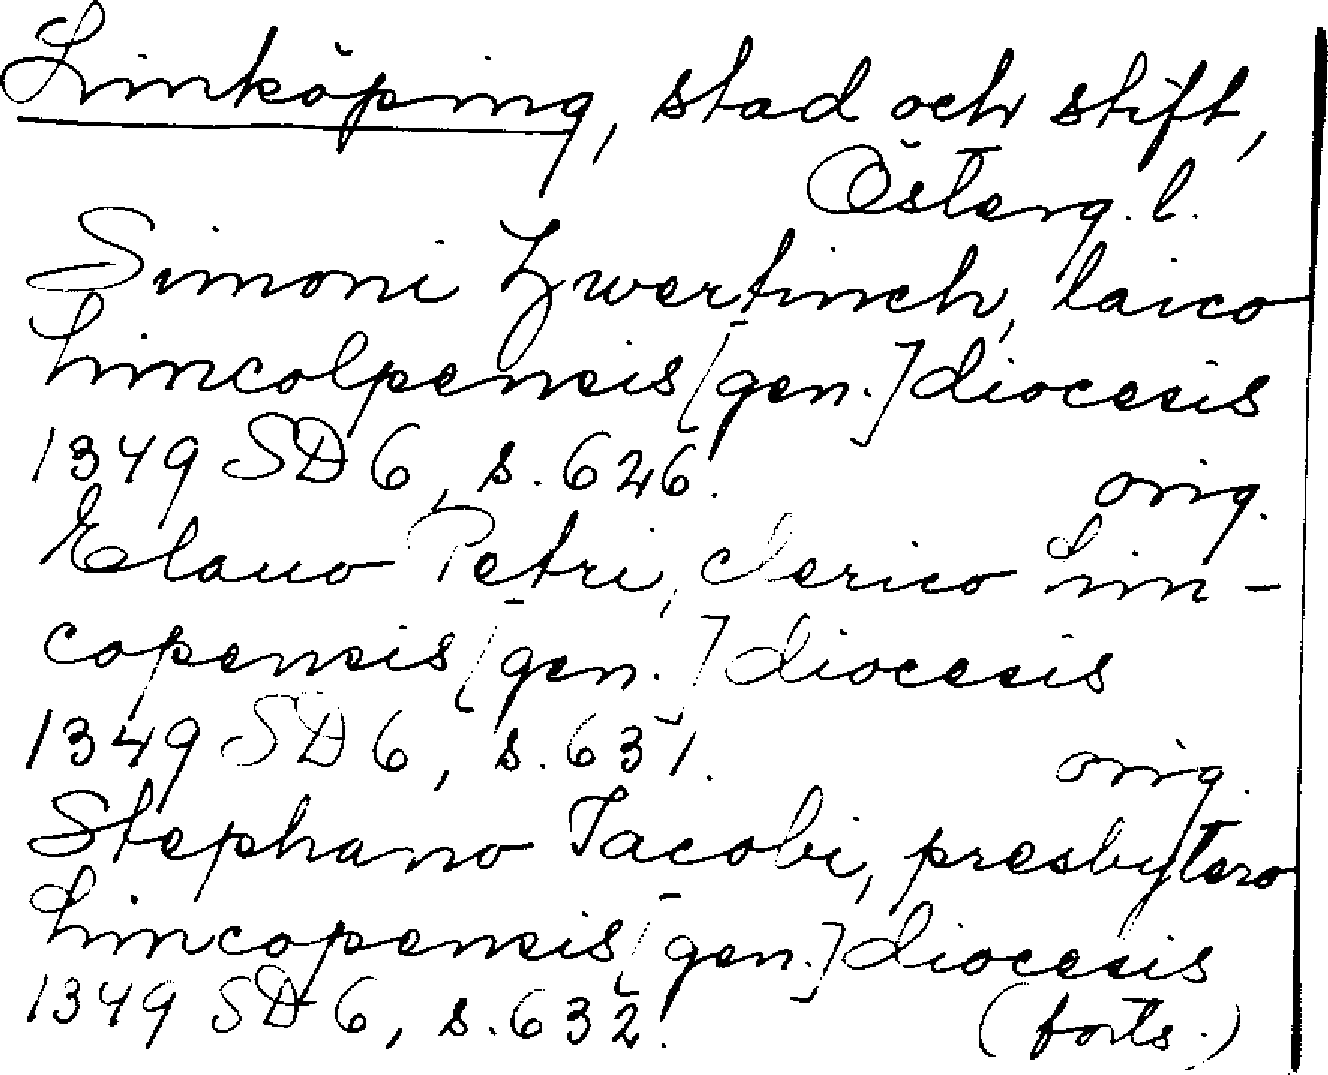 Linköping, stad och stift,
Österg. l.
Simoni Zwertinch, laico
Lincolpensis [gen.] diocesis
1349 SD 6, s. 626. orig.
Elauo Petri, clerico Lin-
copensis [gen.] diocesis
1349 SD 6, s. 631. orig.
Stephano Iacobi, presbytero
Lincopensis [gen.] diocesis
1349 SD 6, s. 632. (forts.)